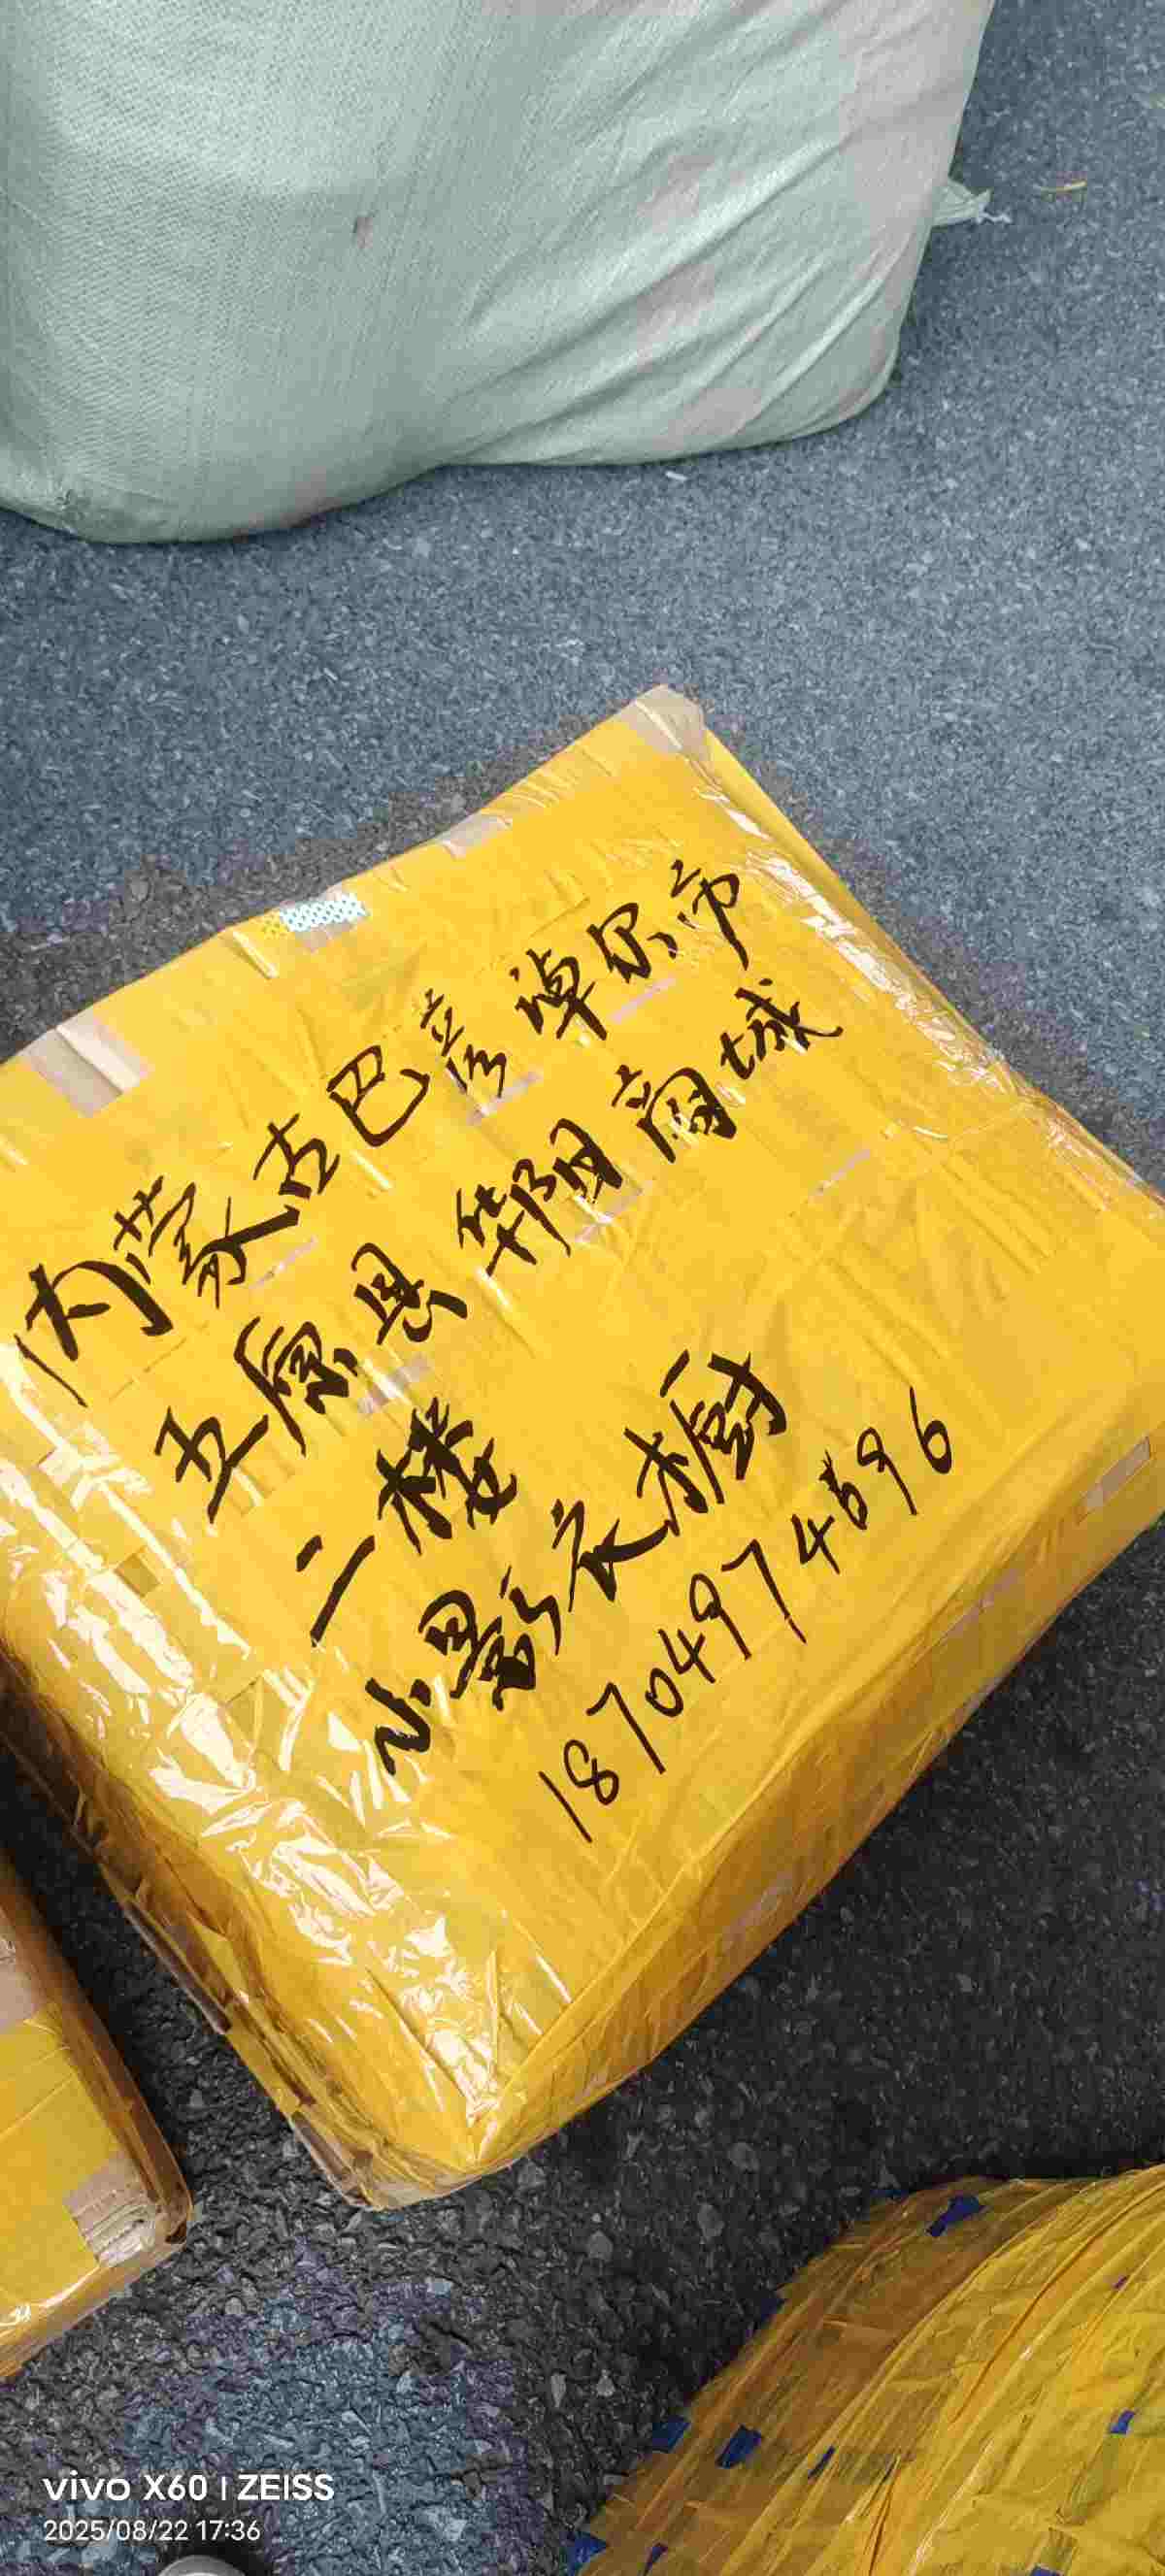 内蒙古巴彦淖尔市
五原县华阳商城
二楼
小影衣橱
18704974696
vivo X60 | ZEISS
2025/08/22 17:36